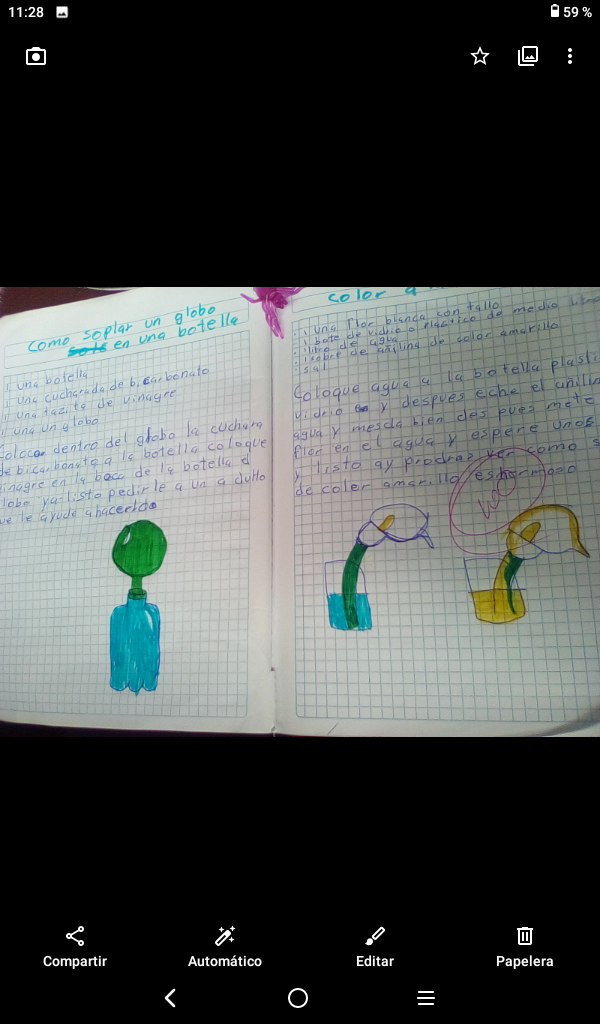 11:28
59 %
Como soplar un globo
en una botella
1 una botella
1 una cucharada de bicarbonato
1 una tazita de vinagre
1 una un globo
coloca dentro del globo la cuchara
de bicarbonato a la botella coloque
vinagre en la boca de la botella el
globo ya listo pedirle a un adulto
que le ayude a hacerlo
color a
1 una flor blanca con tallo
1 bote de vidrio o plastico de medio litro
1 litro de agua
1 sobre de añilina de color amarillo
sal
Coloque agua a la botella plasti
vidrio y despues eche el añilin
agua y mescla bien des pues mete
flor en el agua y espere unos
y listo ay prodras ver como s
de coler amarillo es hermoso
Compartir
Automático
Editar
Papelera